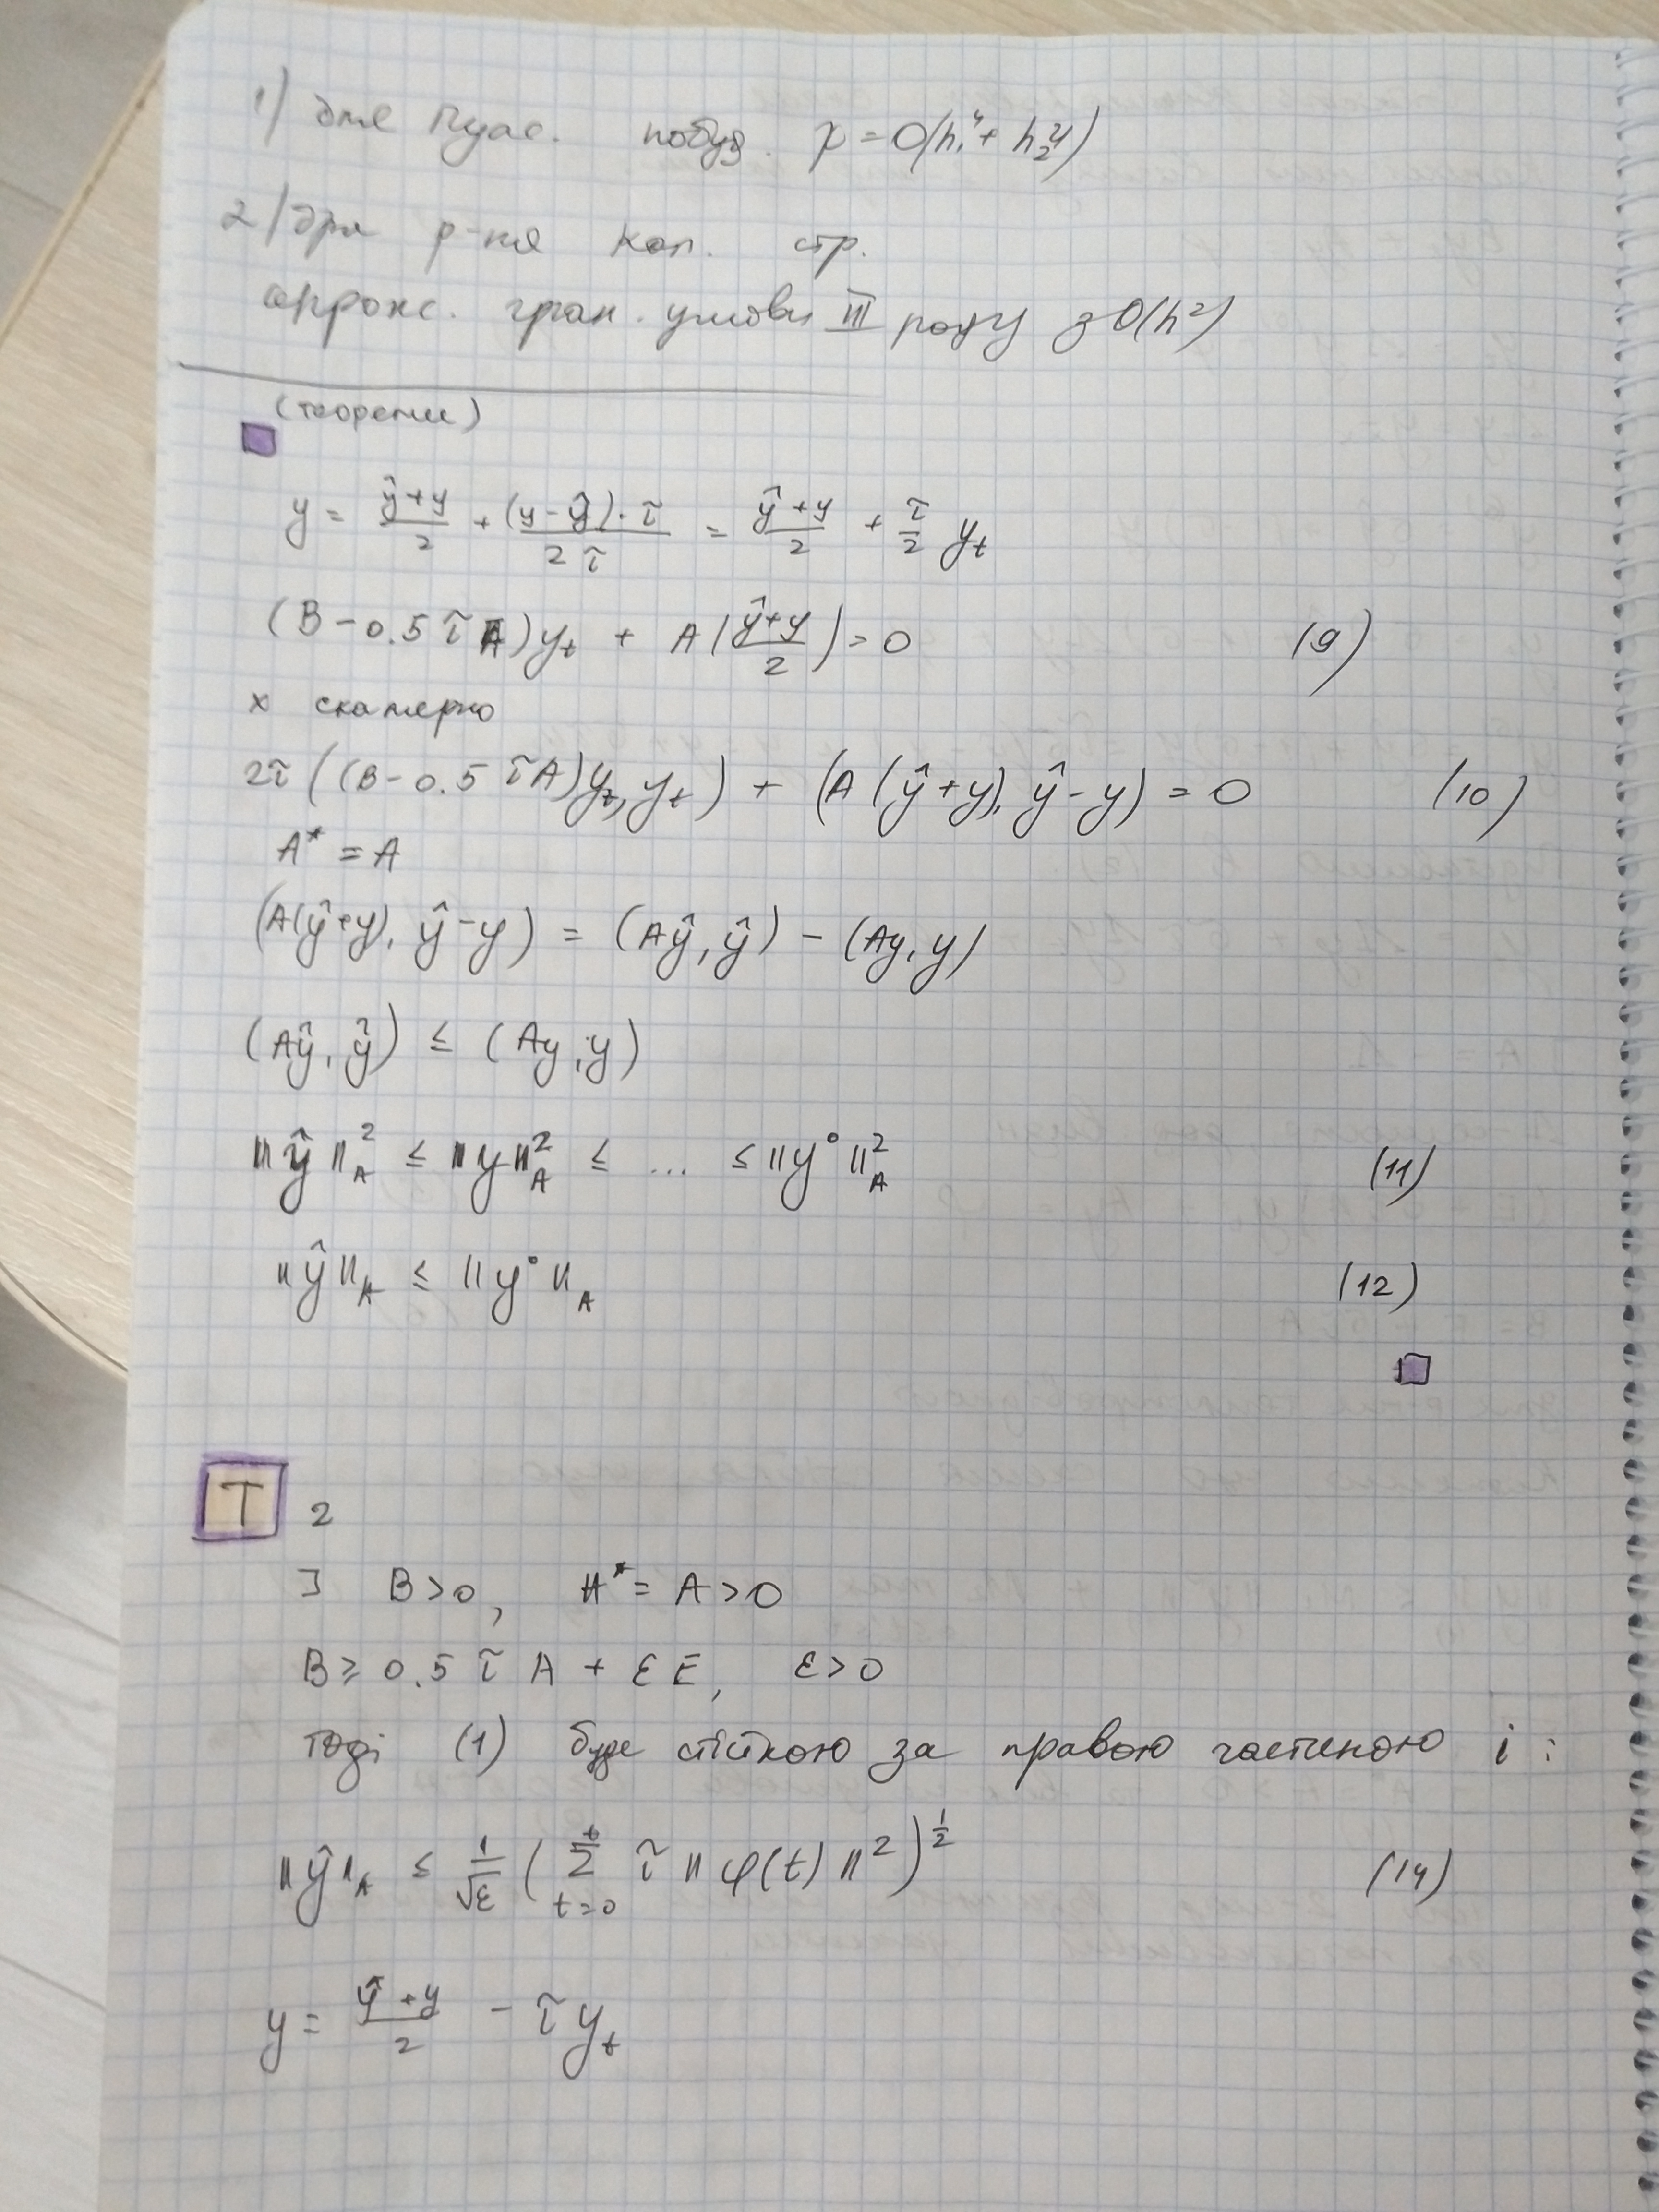 1) для Пуас. побуд. ψ = O(h₁⁴ + h₂⁴)
2) для р-ня кол. стр.
апрокс. гран. умови III роду з O(h²)
(теореми)
y = (ŷ+y)/2 + ((y-ŷ)·τ)/(2τ) = (ŷ+y)/2 + τ/2 yₜ
(B - 0.5 τ A)yₜ + A((ŷ+y)/2) = 0 (9)
x скалярно
2τ((B - 0.5 τA)yₜ, yₜ) + (A(ŷ+y), ŷ-y) = 0 (10)
A* = A
(A(ŷ+y), ŷ-y) = (Aŷ, ŷ) - (Ay, y)
(Aŷ, ŷ) ≤ (Ay, y)
||ŷ||²_A ≤ ||y||²_A ≤ ... ≤ ||y°||²_A (11)
||ŷ||_A ≤ ||y°||_A (12)
T 2
∃ B>0, A* = A>0
B ≥ 0.5 τ A + εE, ε>0
тоді (1) буде стійкою за правою частиною і:
||ŷ||_A ≤ 1/√ε (Σ_{t=0}^{t} τ ||φ(t)||²)^{1/2} (14)
y = (ŷ+y)/2 - τ yₜ